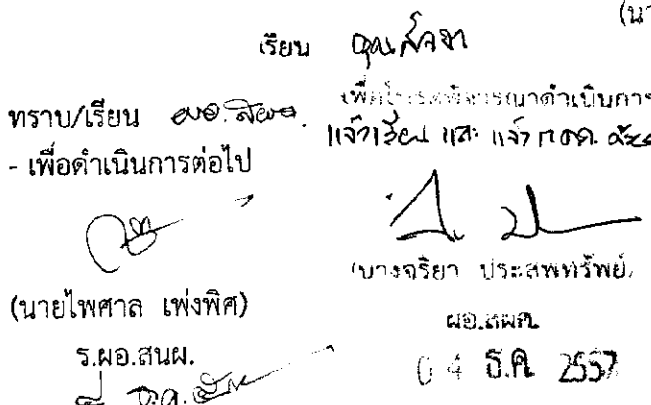 (นา
เรียน คุณสัจจา
ทราบ/เรียน ผอ.
- เพื่อดำเนินการต่อไป
(นายไพศาล เพ่งพิศ)
ร.ผอ.สนผ.
เพื่อโปรดพิจารณาดำเนินการ
แจ้งเวียน และ แจ้ง
(นางจริยา ประสพทรัพย์)
ผอ.สผค.
0 4 ธ.ค. 2557